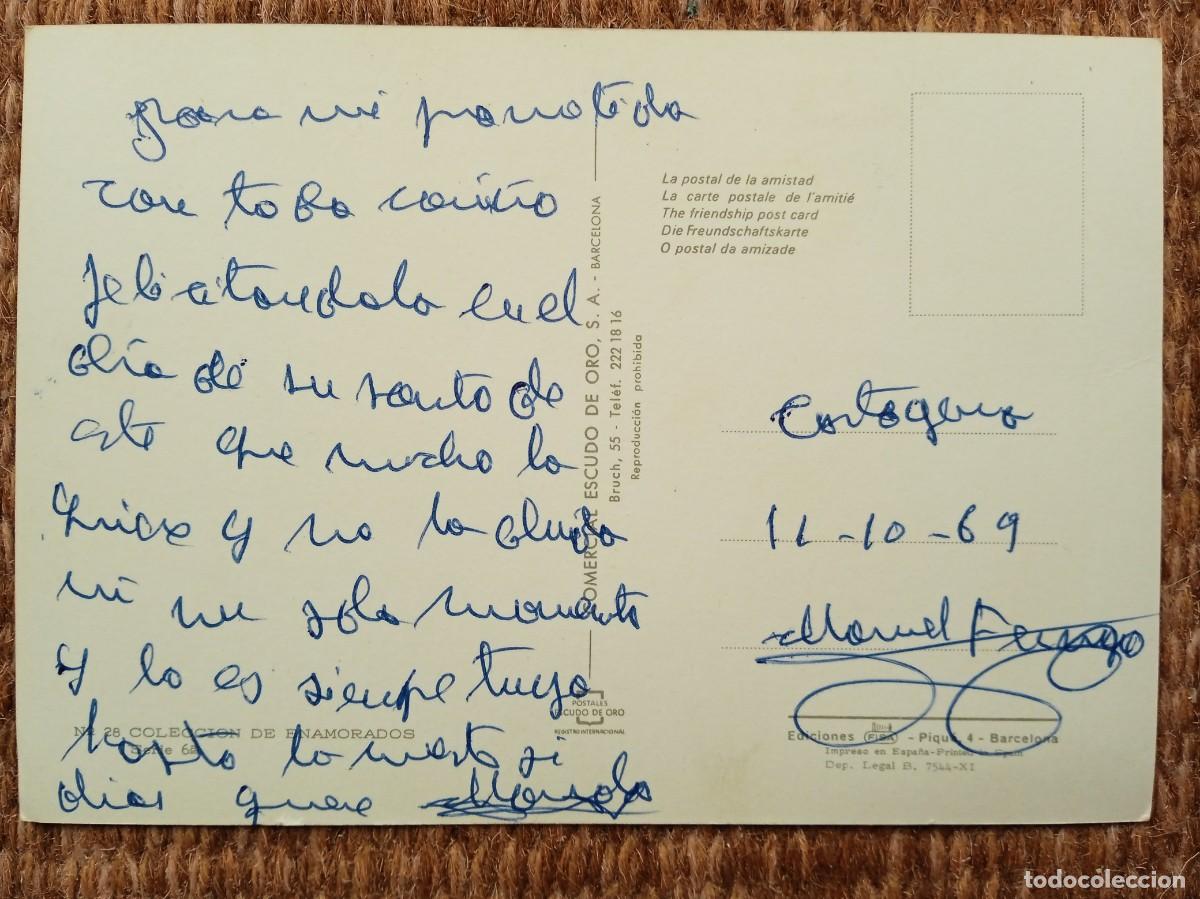 para mi
con toda cariño
felicitandola en el
día de su santo de
este que mucho la
quiere y no la olvida
ni un solo momento
y lo es siempre tuyo
hasta la muerte si
dios quiere Manolo
COMERCIAL ESCUDO DE ORO, S. A. - BARCELONA
Bruch, 55 - Teléf. 222 18 16
Reproducción prohibida
POSTALES
ESCUDO DE ORO
REGISTRO INTERNACIONAL
Nº 28 COLECCION DE ENAMORADOS
Serie 6ª
La postal de la amistad
La carte postale de l'amitié
The friendship post card
Die Freundschaftskarte
O postal da amizade
Cartagena
11-10-69
Manuel
Ediciones FISA - Piqué, 4 - Barcelona
Impreso en España-Printed in Spain
Dep. Legal B. 7544-XI
todocoleccion